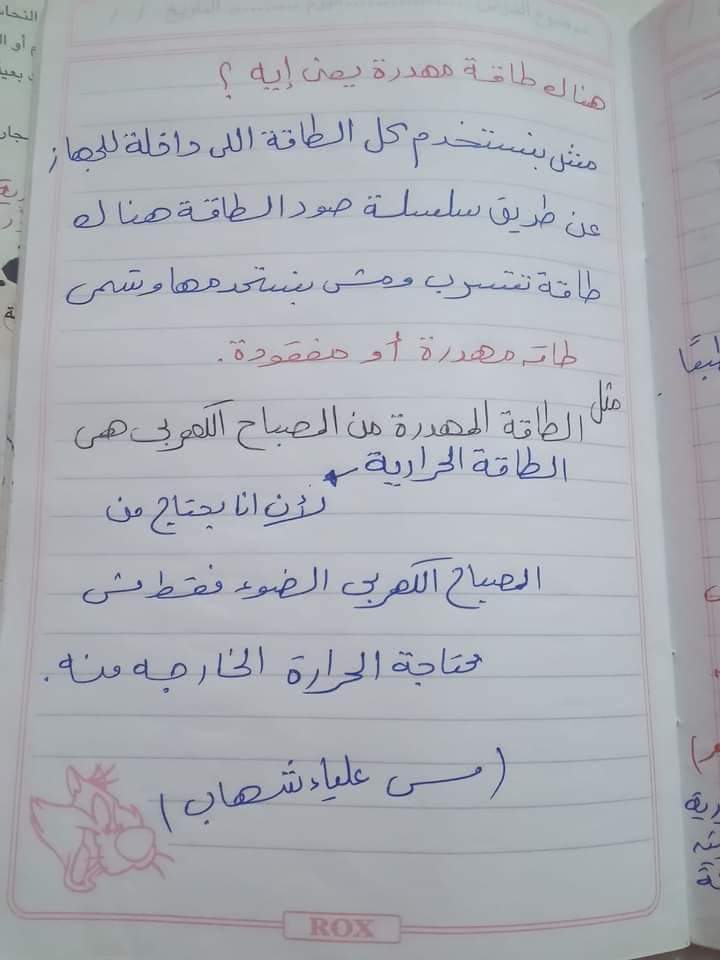 هناك طاقة مهدرة يعنى إيه ؟
مش بنستخدم كل الطاقة اللى داخلة للجهاز
عن طريق سلسلة صور الطاقة هناك
طاقة تتسرب ومش بنستخدمها وتسمى
طاقه مهدرة أو مفقودة.
مثل الطاقة المهدرة من المصباح الكهربى هى
الطاقة الحرارية
لأن انا بحتاج من
المصباح الكهربى الضوء فقط مش
محتاجة الحرارة الخارجه منه.
(مس علياء شهاب)
ROX